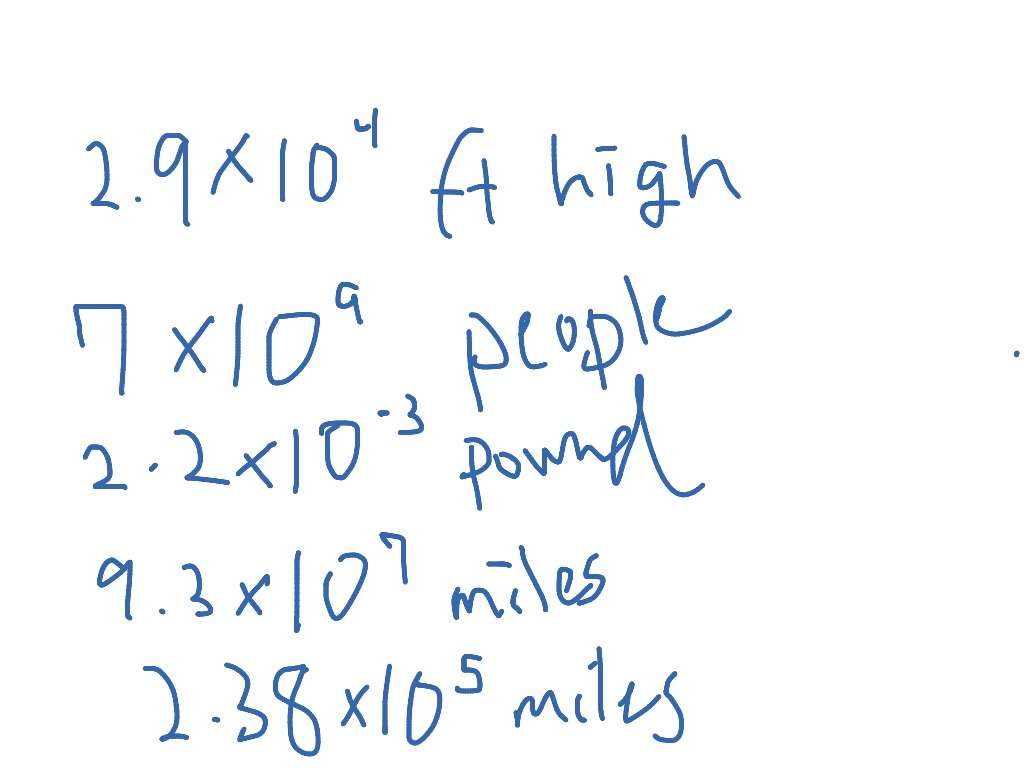 2.9×10⁴ ft high
7×10⁹ people
2.2×10⁻³ pound
9.3×10⁷ miles
2.38×10⁵ miles